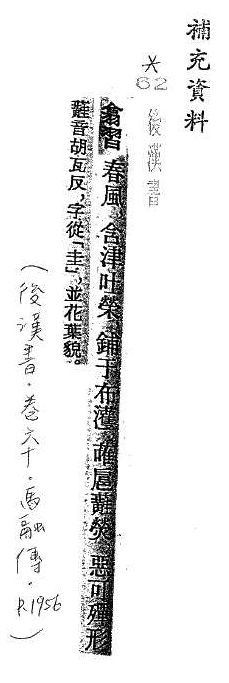 補充資料
*62 後漢書
翕習春風含津吐榮鋪于布濩蓶扈蘳熒惡可殫形
蘳音胡瓦反，字從「圭」，並花葉貌。
(後漢書．卷六十．馬融傳．P.1956)